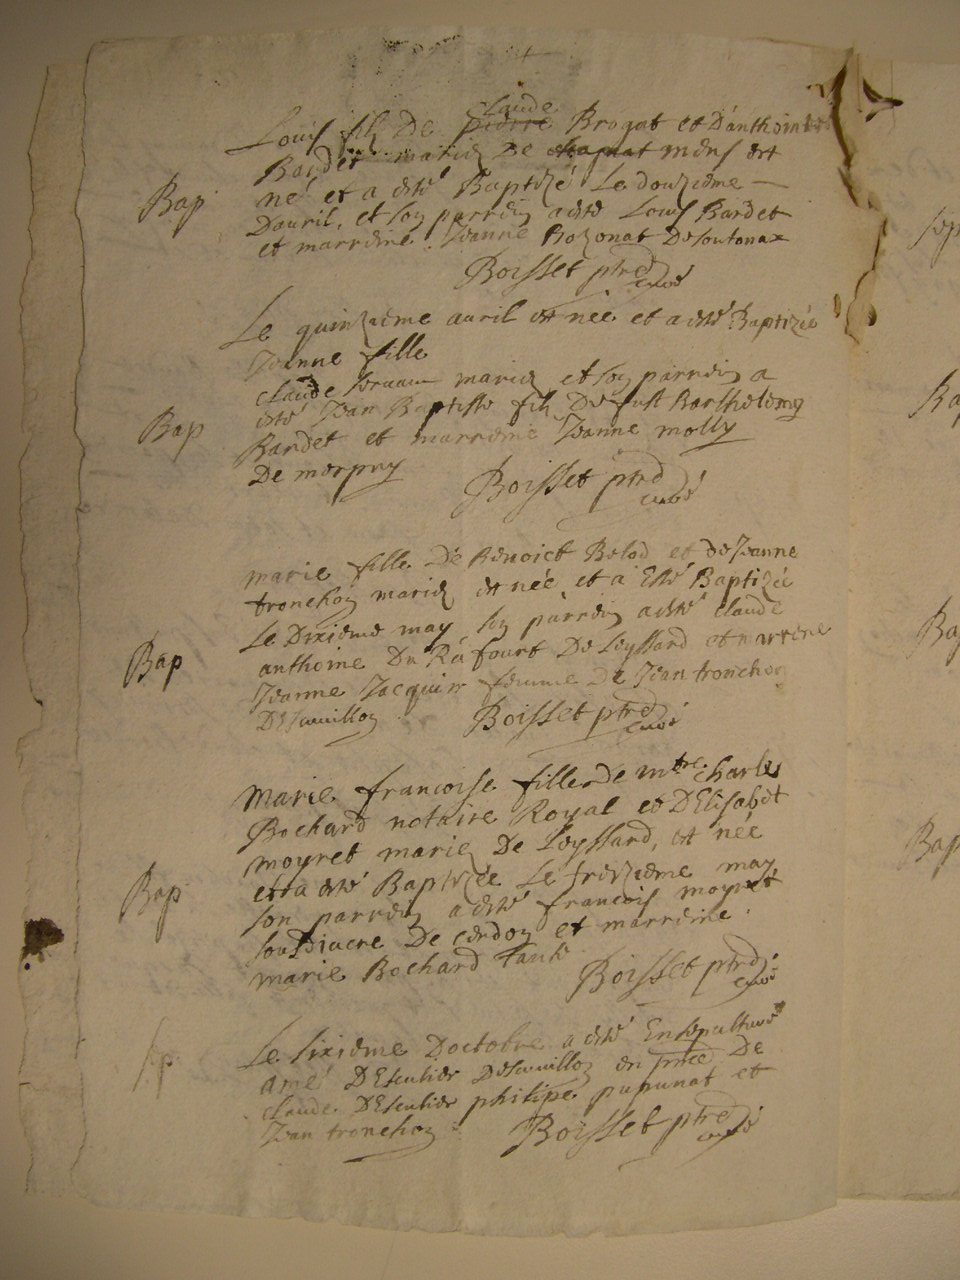 Claude
Louis filz De pierre Brogat et D'anthoinette
Bardet mariez De chapnat mens est
Bap né et a esté Baptizé Le douzieme
Dauril, et son parrein a esté Louis Bardet
et marreine Jeanne Bozonat
Boisset ptre
curé
Le quinzieme auril est née et a esté Baptizée
Jeanne fille
claude mariez et son parrein a
Bap esté Jean Baptiste filz De fust Barthelemy
Bardet et marreine Jeanne molly
De morpuy
Boisset ptre
curé
marie fille De Benoict Belod et de Jeanne
tronchon mariez est née et a Esté Baptizée
Le Dixieme may son parrein a esté claude
Bap anthoine Du Rafourt De Leyssard et marrene
Jeanne Jacquin femme De Jean tronchon
Boisset ptre
curé
Marie francoise fille de mtre charles
Bochard notaire Royal et D'Elisabet
moyret mariez De Leyssard, est née
Bap et a esté Baptizée Le treizieme may
son parrein a esté francois moyret
sousdiacre De cerdon et marreine
marie Bochard tante
Boisset ptre
curé
Sep Le sixieme Doctobre a esté Ensepulturé
amé DEscutier en pnce De
claude DEscutier philipe pupunat et
Jean tronchon
Boisset ptre
curé
Sep
Ba
Bap
Bap